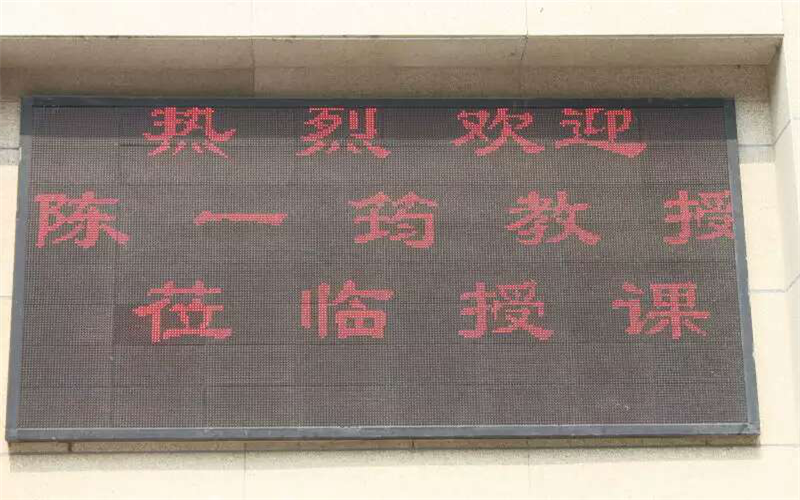 热烈欢迎
陈一筠教授
莅临授课